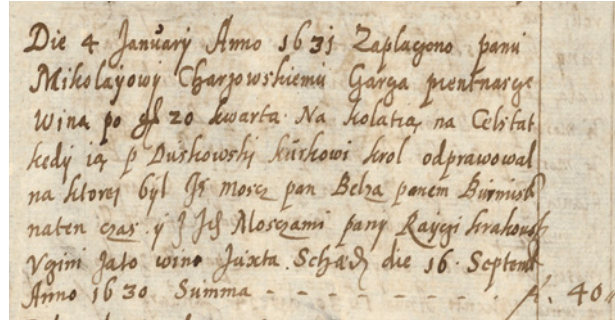 Die 4 January Anno 1631 Zaplacono panu
Mikolayowy Charzowskiemu Garga pientnascye
Wina po gr 20 kwarta Na kolatią na Celstat
kedy ią p Duskowsky kurkowi krol odprawowal
na ktorej byl Je moscz pan Belza panem Burmist
naten czas y J Ich Mosczami pany Raycy krakowsk
Ugini Jato wino Juxta Sched die 16 Septemb
Anno 1630 Summa - - - - - - - f. 40